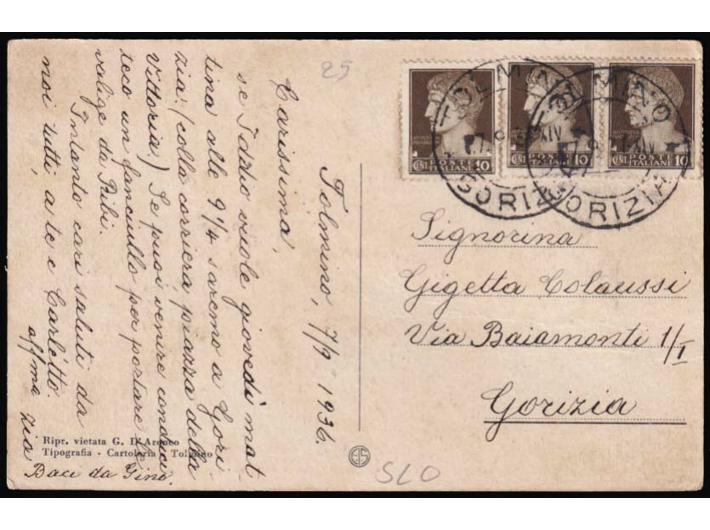 25
Tolmino, 7/9 1936.
Carissima,
se Iddio vuole giovedì mat-
tina alle 9¼ saremo a Gori
zia: (colla corriera piazza della
Vittoria) Se puoi venire conduci
teco un fanciullo per portare le
valige da Bibi.
Intanto cari saluti da
noi tutti, a te e Carletto.
aff/ma zia
Baci da Gino.
Ripr. vietata G. D'Aronco
Tipografia - Cartoleria - Tolmino
SLO
POSTE
ITALIANE
10
POSTE
ITALIANE
10
POSTE
ITALIANE
10
TOLMINO
GORIZIA
TOLMINO
GORIZIA
Signorina
Gigetta Colaussi
Via Baiamonti 1/I
Gorizia